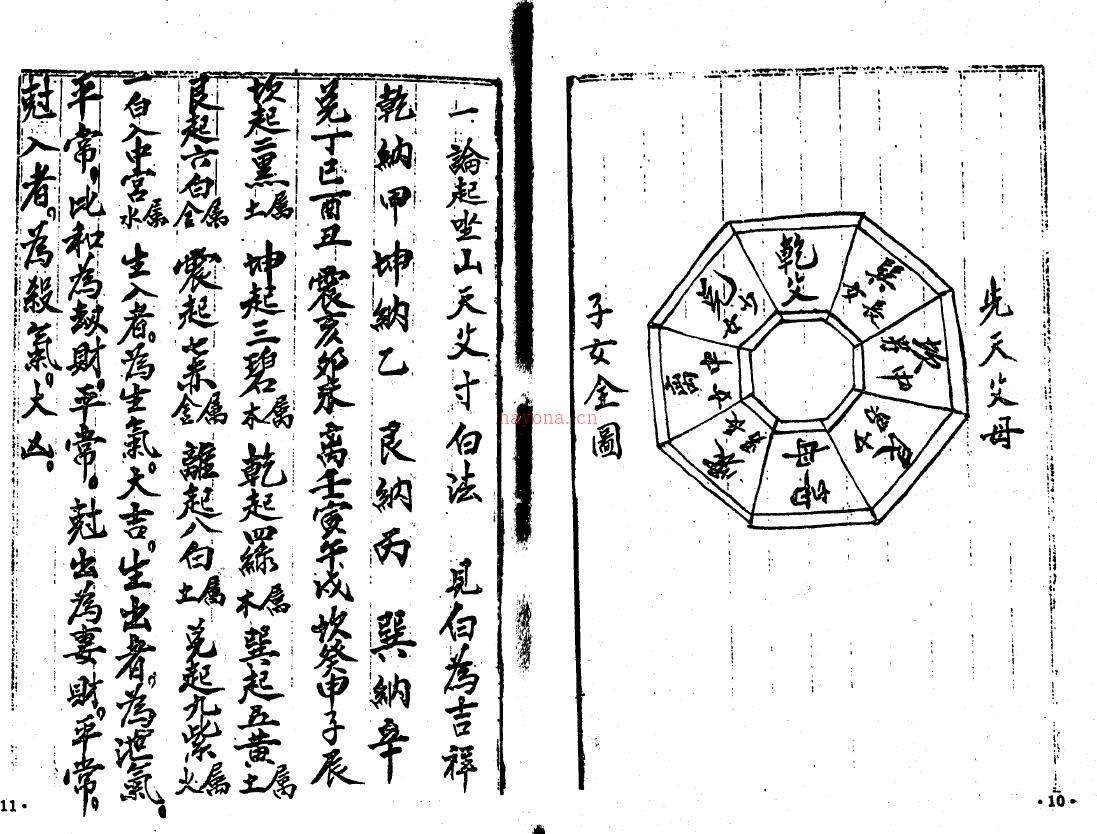 先天父母
子女全圖
乾父
巽長女
坎中男
艮少男
坤母
震長男
離中女
兌少女
·10·
一論起坐山天父寸白法　見白為吉祥
乾納甲 坤納乙 艮納丙 巽納辛
兌丁巳酉丑 震亥卯未 离壬寅午戌 坎癸申子辰
坎起二黑属土 坤起三碧属木 乾起四綠属木 巽起五黄属土
艮起六白属金 震起七赤属金 離起八白属土 兌起九紫属火
一白入中宮属水 生入者。為生氣。大吉。生出者。為泄氣。
平常。比和為刼財。平常。尅出為妻財。平常。
尅入者。為殺氣。大凶。
11·
nayona.cn